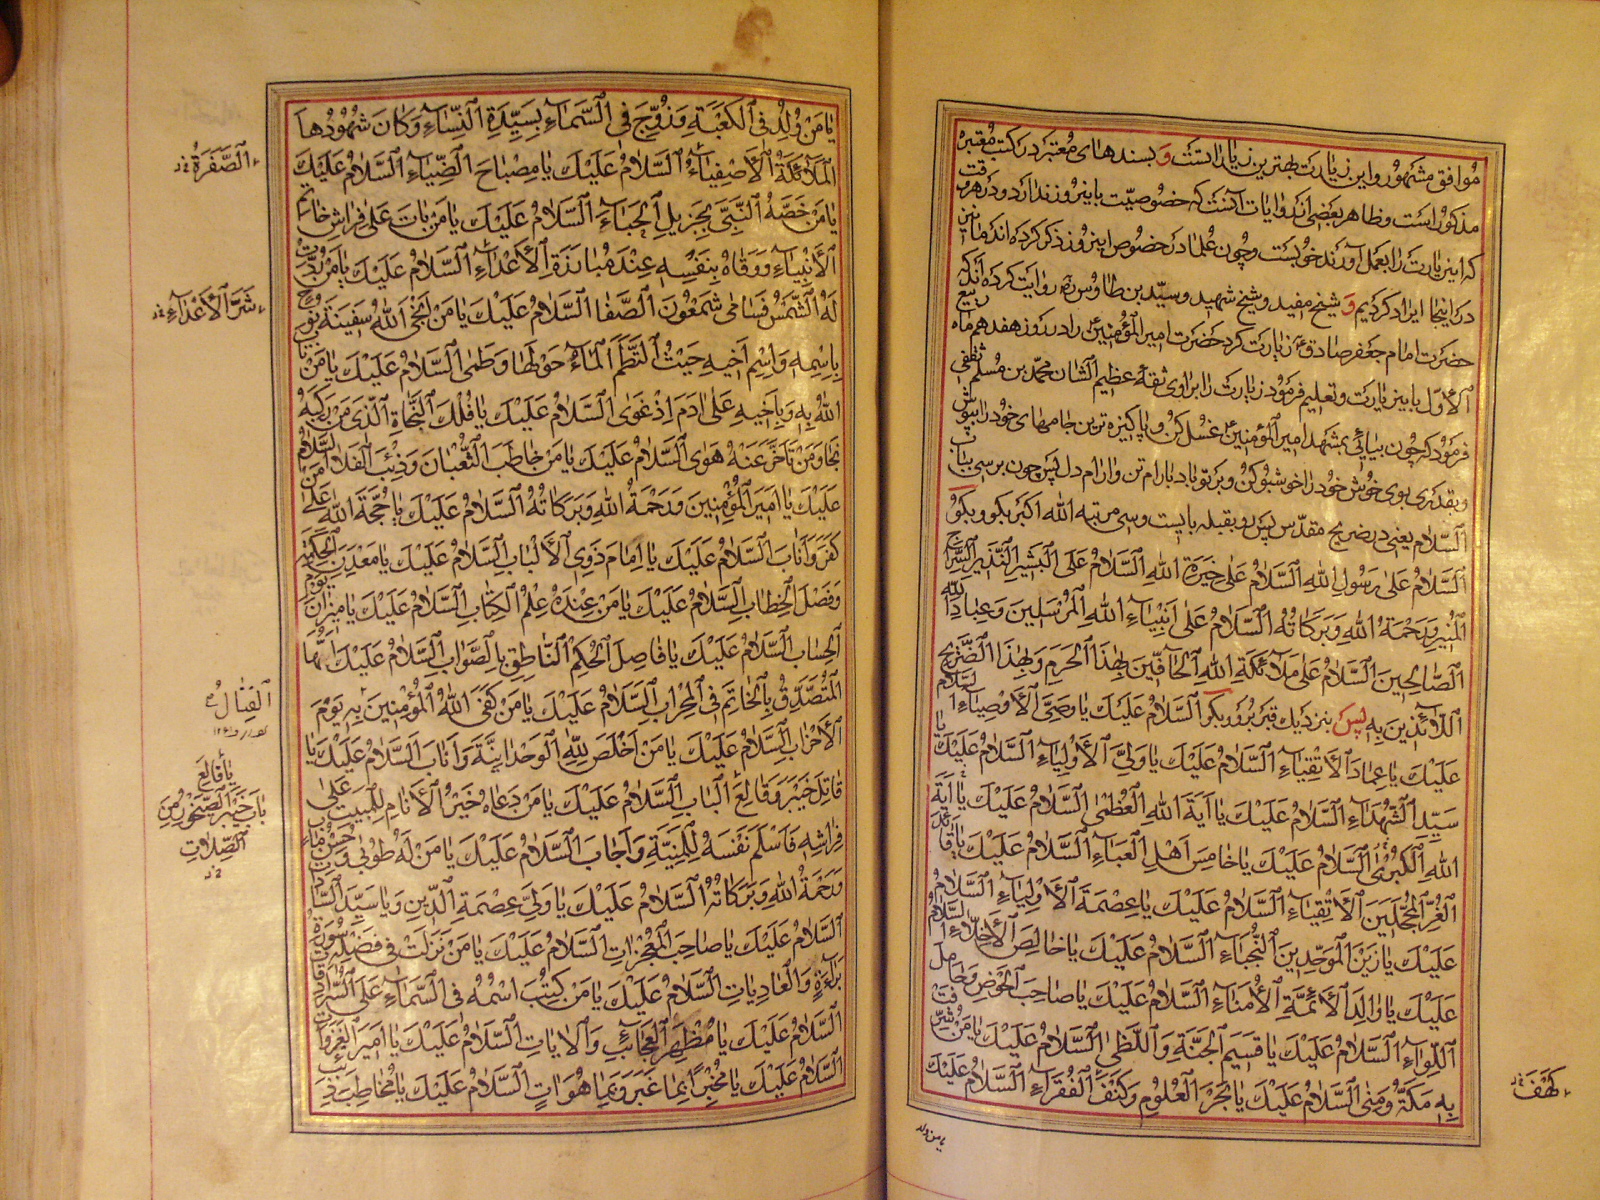 موافق مشهور و این زیارت بهترین زیاراتست و بسندهای معتبر در کتب معتبره
مذکور است و ظاهر بعضی از روایات آنست که خصوصیّت باینروز ندارد و در هر وقت
که این زیارت را بعمل آورند خوبست و چون علما در خصوص اینروز ذکر کرده‌اند ما نیز
در اینجا ایراد کردیم و شیخ مفید و شیخ شهید و سیّد بن طاوس ره روایت کرده‌اند که
حضرت امام جعفر صادق ع زیارت کرد حضرت امیر المؤمنین را در روز هفدهم ماه ربیع
الاوّل باینزیارت و تعلیم فرمود زیارت را براوی ثقهٔ عظیم الشان محمّد بن مسلم ثقفی
فرمود که چون بیائی بمشهد امیر المؤمنین غسل کن و پاکیزه‌ترین جامهای خود را بپوش
و بقدری بوی خوش خود را خوشبو کن و بر تو باد بارام تن و ارام دل پس چون برسی بباب
السّلام یعنی در ضریح مقدّس پس رو بقبله بایست و سی مرتبه الله اکبر بکو و بکو
اَلسَّلامُ عَلی رَسُولِ اللهِ اَلسَّلامُ عَلی خِیَرَةِ اللهِ اَلسَّلامُ عَلَی الْبَشِیرِ النَّذِیرِ السِّراجِ
الْمُنِیرِ وَرَحْمَةُ اللهِ وَبَرَکاتُهُ اَلسَّلامُ عَلی اَنْبِیآءِ اللهِ الْمُرْسَلِینَ وَعِبادِ اللهِ
الصّالِحِینَ اَلسَّلامُ عَلی مَلآئِکَةِ اللهِ الْحآفِّینَ بِهٰذَا الْحَرَمِ وَبِهٰذَا الضَّرِیحِ
اللّآئِذِینَ بِهِ پس بنزدیك قبر برو و بکو اَلسَّلامُ عَلَیْكَ یا وَصِیَّ الْاَوْصِیآءِ السَّلامُ
عَلَیْكَ یا عِمادَ الْاَتْقِیآءِ اَلسَّلامُ عَلَیْكَ یا وَلِیَّ الْاَوْلِیآءِ اَلسَّلامُ عَلَیْكَ یا
سَیِّدَ الشُّهَدآءِ اَلسَّلامُ عَلَیْكَ یا آیَةَ اللهِ الْعُظْمی اَلسَّلامُ عَلَیْكَ یا آیَةَ
اللهِ الْکُبْری اَلسَّلامُ عَلَیْكَ یا خامِسَ اَهْلِ الْعَبآءِ اَلسَّلامُ عَلَیْكَ یا قآئِدَ
الْغُرِّ الْمُحَجَّلِینَ الْاَتْقِیآءِ اَلسَّلامُ عَلَیْكَ یا عِصْمَةَ الْاَوْلِیآءِ اَلسَّلامُ
عَلَیْكَ یا زَیْنَ الْمُوَحِّدِینَ النُّجَبآءِ اَلسَّلامُ عَلَیْكَ یا خالِصَ الْاَخِلّآءِ السَّلامُ
عَلَیْكَ یا والِدَ الْاَئِمَّةِ الْاُمَنآءِ اَلسَّلامُ عَلَیْكَ یا صاحِبَ الْحَوْضِ وَحامِلَ
اللِّوآءِ اَلسَّلامُ عَلَیْكَ یا قَسِیمَ الْجَنَّةِ وَاللَّظی اَلسَّلامُ عَلَیْكَ یا مَنْ شُرِّفَتْ
بِهِ مَکَّةُ وَمِنی اَلسَّلامُ عَلَیْكَ یا بَحْرَ الْعُلُومِ وَکَنَفَ الْفُقَرآءِ اَلسَّلامُ عَلَیْكَ
کَهْفَ
یا من ولد
یا مَنْ وُلِدَ فِی الْکَعْبَةِ وَزُوِّجَ فِی السَّمآءِ بِسَیِّدَةِ النِّسآءِ وَکانَ شُهُودُها
الْمَلآئِکَةُ الْاَصْفِیآءُ اَلسَّلامُ عَلَیْكَ یا مِصْباحَ الضِّیآءِ اَلسَّلامُ عَلَیْكَ
یا مَنْ خَصَّهُ النَّبِیُّ بِجَزِیلِ الْحِبآءِ اَلسَّلامُ عَلَیْكَ یا مَنْ باتَ عَلی فِراشِ خاتَمِ
الْاَنْبِیآءِ وَوَقاهُ بِنَفْسِهِ عِنْدَ مُبارَزَةِ الْاَعْدآءِ اَلسَّلامُ عَلَیْكَ یا مَنْ رُدَّتْ
لَهُ الشَّمْسُ فَسامی شَمْعُونَ الصَّفا اَلسَّلامُ عَلَیْكَ یا مَنْ اَنْجَی اللهُ سَفِینَةَ نُوحٍ
بِاسْمِهِ وَاسْمِ اَخِیهِ حَیْثُ الْتَطَمَ الْمآءُ حَوْلَها وَطَمی اَلسَّلامُ عَلَیْكَ یا مَنْ تابَ
اللهُ بِهِ وَبِاَخِیهِ عَلی ادَمَ اِذْ غَوی اَلسَّلامُ عَلَیْكَ یا فُلْكَ النَّجاةِ الَّذِی مَنْ رَکِبَهُ
نَجا وَمَنْ تَاَخَّرَ عَنْهُ هَوی اَلسَّلامُ عَلَیْكَ یا مَنْ خاطَبَ الثُّعْبانَ وَذِئْبَ الْفَلا اَلسَّلامُ
عَلَیْكَ یا اَمِیرَ الْمُؤْمِنِینَ وَرَحْمَةُ اللهِ وَبَرَکاتُهُ اَلسَّلامُ عَلَیْكَ یا حُجَّةَ اللهِ عَلی مَنْ
کَفَرَ وَاَنابَ اَلسَّلامُ عَلَیْكَ یا اِمامَ ذَوِی الْاَلْبابِ اَلسَّلامُ عَلَیْكَ یا مَعْدِنَ الْحِکْمَةِ
وَفَصْلَ الْخِطابِ اَلسَّلامُ عَلَیْكَ یا مَنْ عِنْدَهُ عِلْمُ الْکِتابِ اَلسَّلامُ عَلَیْكَ یا مِیزانَ یَوْمِ
الْحِسابِ اَلسَّلامُ عَلَیْكَ یا فاصِلَ الْحُکْمِ النّاطِقَ بِالصَّوابِ اَلسَّلامُ عَلَیْكَ اَیُّهَا
الْمُتَصَدِّقُ بِالْخاتَمِ فِی الْمِحْرابِ اَلسَّلامُ عَلَیْكَ یا مَنْ کَفَی اللهُ الْمُؤْمِنِینَ بِهِ یَوْمَ
الْاَحْزابِ اَلسَّلامُ عَلَیْكَ یا مَنْ اَخْلَصَ لِلّهِ الْوَحْدانِیَّةَ وَاَنابَ اَلسَّلامُ عَلَیْكَ یا
قاتِلَ خَیْبَرَ وَقالِعَ الْبابِ اَلسَّلامُ عَلَیْكَ یا مَنْ دَعاهُ خَیْرُ الْاَنامِ لِلْمَبِیتِ عَلی
فِراشِهِ فَاَسْلَمَ نَفْسَهُ لِلْمَنِیَّةِ وَاَجابَ اَلسَّلامُ عَلَیْكَ یا مَنْ لَهُ طُوبی وَحُسْنُ مَابٍ
وَرَحْمَةُ اللهِ وَبَرَکاتُهُ اَلسَّلامُ عَلَیْكَ یا وَلِیَّ عِصْمَةِ الدِّینِ وَیا سَیِّدَ السّاداتِ
اَلسَّلامُ عَلَیْكَ یا صاحِبَ الْمُعْجِزاتِ اَلسَّلامُ عَلَیْكَ یا مَنْ نَزَلَتْ فِی فَضْلِهِ سُورَةُ
بَرآءَةٍ وَالْعادِیاتِ اَلسَّلامُ عَلَیْكَ یا مَنْ کُتِبَ اسْمُهُ فِی السَّمآءِ عَلَی السُّرادِقاتِ
اَلسَّلامُ عَلَیْكَ یا مُظْهِرَ الْعَجآئِبِ وَالْایاتِ اَلسَّلامُ عَلَیْكَ یا اَمِیرَ الْغَزَواتِ
اَلسَّلامُ عَلَیْكَ یا مُخْبِرًا بِما غَبَرَ وَبِما هُوَ اتٍ اَلسَّلامُ عَلَیْكَ یا مُخاطِبَ ذِئْبِ
السَّفَرَةُ
شَرَّ الْاَعْدآءِ
الْقِتالَ
یا قالِعَ
بابِ خَیْبَرَ الصَّیْخُودِ مِنَ
الصِّلابِ